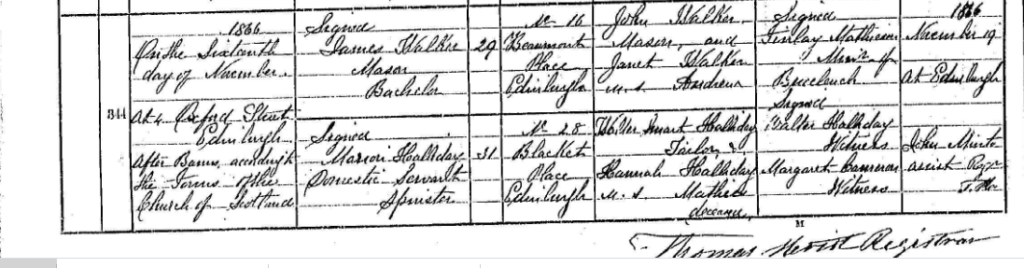 1866
On the Sixteenth
day of November.
At 4 Oxford Street
Edinburgh
After Banns, according to
the Forms of the
Church of Scotland
344
Signed
James Walker
Mason
Bachelor
Signed
Marion Halliday
Domestic Servant
Spinster
29
31
No 16
Beaumont
Place
Edinburgh
No 28
Blacket
Place
Edinburgh
John Walker,
Mason, and
Janet Walker
m.s. Andrew
Walter Smart Halliday
Tailor &
Hannah Halliday
m.s.
deceased
Signed
Finlay Mathieson
Minr of
Buccleuch
Signed
Walter Halliday
Witness
Margaret Cameron
Witness
1866
November 19
At Edinburgh
John Minto
assist Regr
M
Thomas Registrar